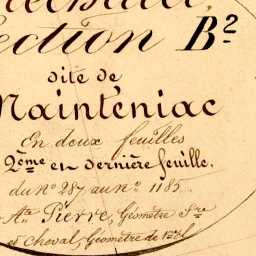 ection B²
dite de
Mainténiac
En deux feuilles
2ème et dernière feuille.
du nº 287 au nº 1185.
Pierre, Géomètre
et Cheval, Géomètre de